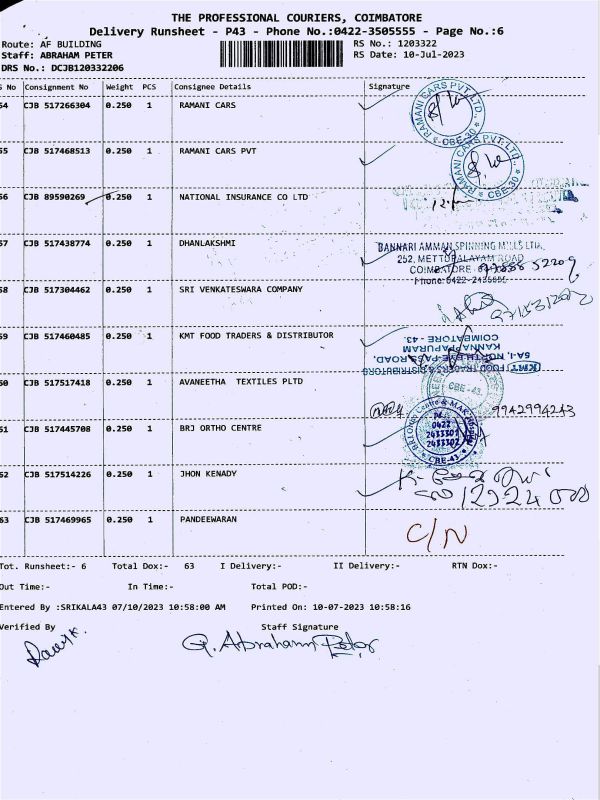 THE PROFESSIONAL COURIERS, COIMBATORE
Delivery Runsheet - P43 - Phone No.:0422-3505555 - Page No.:6
Route: AF BUILDING RS No.: 1203322
Staff: ABRAHAM PETER RS Date: 10-Jul-2023
DRS No.: DCJB120332206
S No Consignment No Weight PCS Consignee Details Signature
54 CJB 517266304 0.250 1 RAMANI CARS
RAMANI CARS PVT. LTD. CBE-30
55 CJB 517468513 0.250 1 RAMANI CARS PVT
RAMANI CARS PVT. LTD. CBE-30
56 CJB 89590269 0.250 1 NATIONAL INSURANCE CO LTD
57 CJB 517438774 0.250 1 DHANLAKSHMI
BANNARI AMMAN SPINNING MILLS LTD.,
252, METTUPALAYAM ROAD
COIMBATORE
Phone: 0422-2435555
58 CJB 517304462 0.250 1 SRI VENKATESWARA COMPANY
59 CJB 517460485 0.250 1 KMT FOOD TRADERS & DISTRIBUTOR
KMT FOOD TRADERS & DISTRIBUTORS
5A-1, NORTH BYE-PASS ROAD,
KANNAPPAPURAM
COIMBATORE - 43.
60 CJB 517517418 0.250 1 AVANEETHA TEXTILES PLTD
CBE-43
9942994243
61 CJB 517445708 0.250 1 BRJ ORTHO CENTRE
Ph
0422
2433301
2433302
CBE-43
62 CJB 517514226 0.250 1 JHON KENADY
63 CJB 517469965 0.250 1 PANDEEWARAN
C/N
Tot. Runsheet:- 6 Total Dox:- 63 I Delivery:- II Delivery:- RTN Dox:-
Out Time:- In Time:- Total POD:-
Entered By :SRIKALA43 07/10/2023 10:58:00 AM Printed On: 10-07-2023 10:58:16
Verified By Staff Signature
G. Abraham Peter